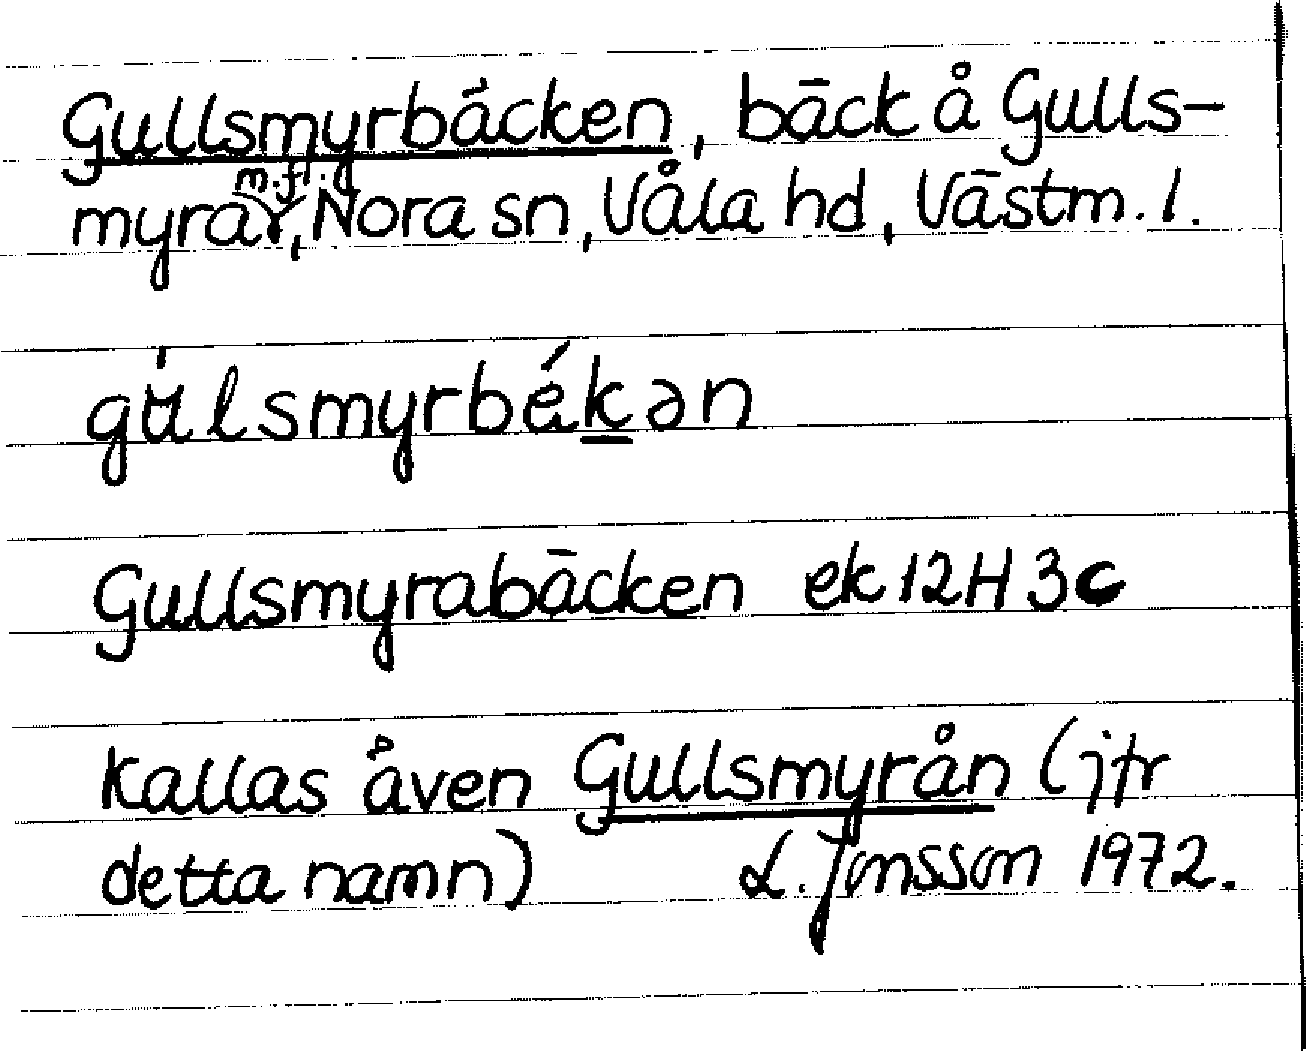 Gullsmyrbäcken, bäck å Gulls-
myrar m.fl., Nora sn, Våla hd, Västm. l.
gú̈lsmyrbék̲ən
Gullsmyrabäcken ek 12H 3c
kallas även Gullsmyrån (jfr
detta namn) L. Jonsson 1972.